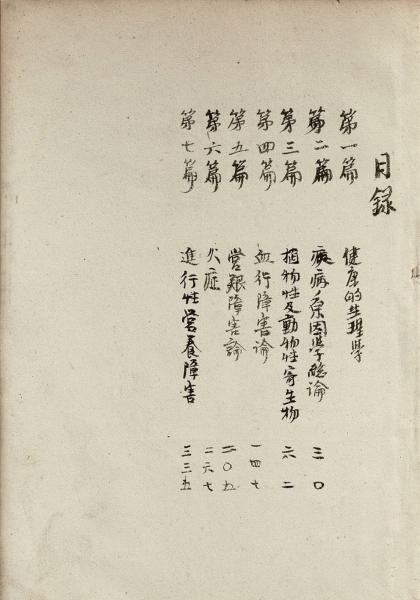 目録
第一篇 健康的生理学
第二篇 疾病原因学総論 三〇
第三篇 植物性及動物性寄生物 六二
第四篇 血行障害論 一四七
第五篇 営養障害論 二〇五
第六篇 火症 二六七
第七篇 進行性営養障害 三三五